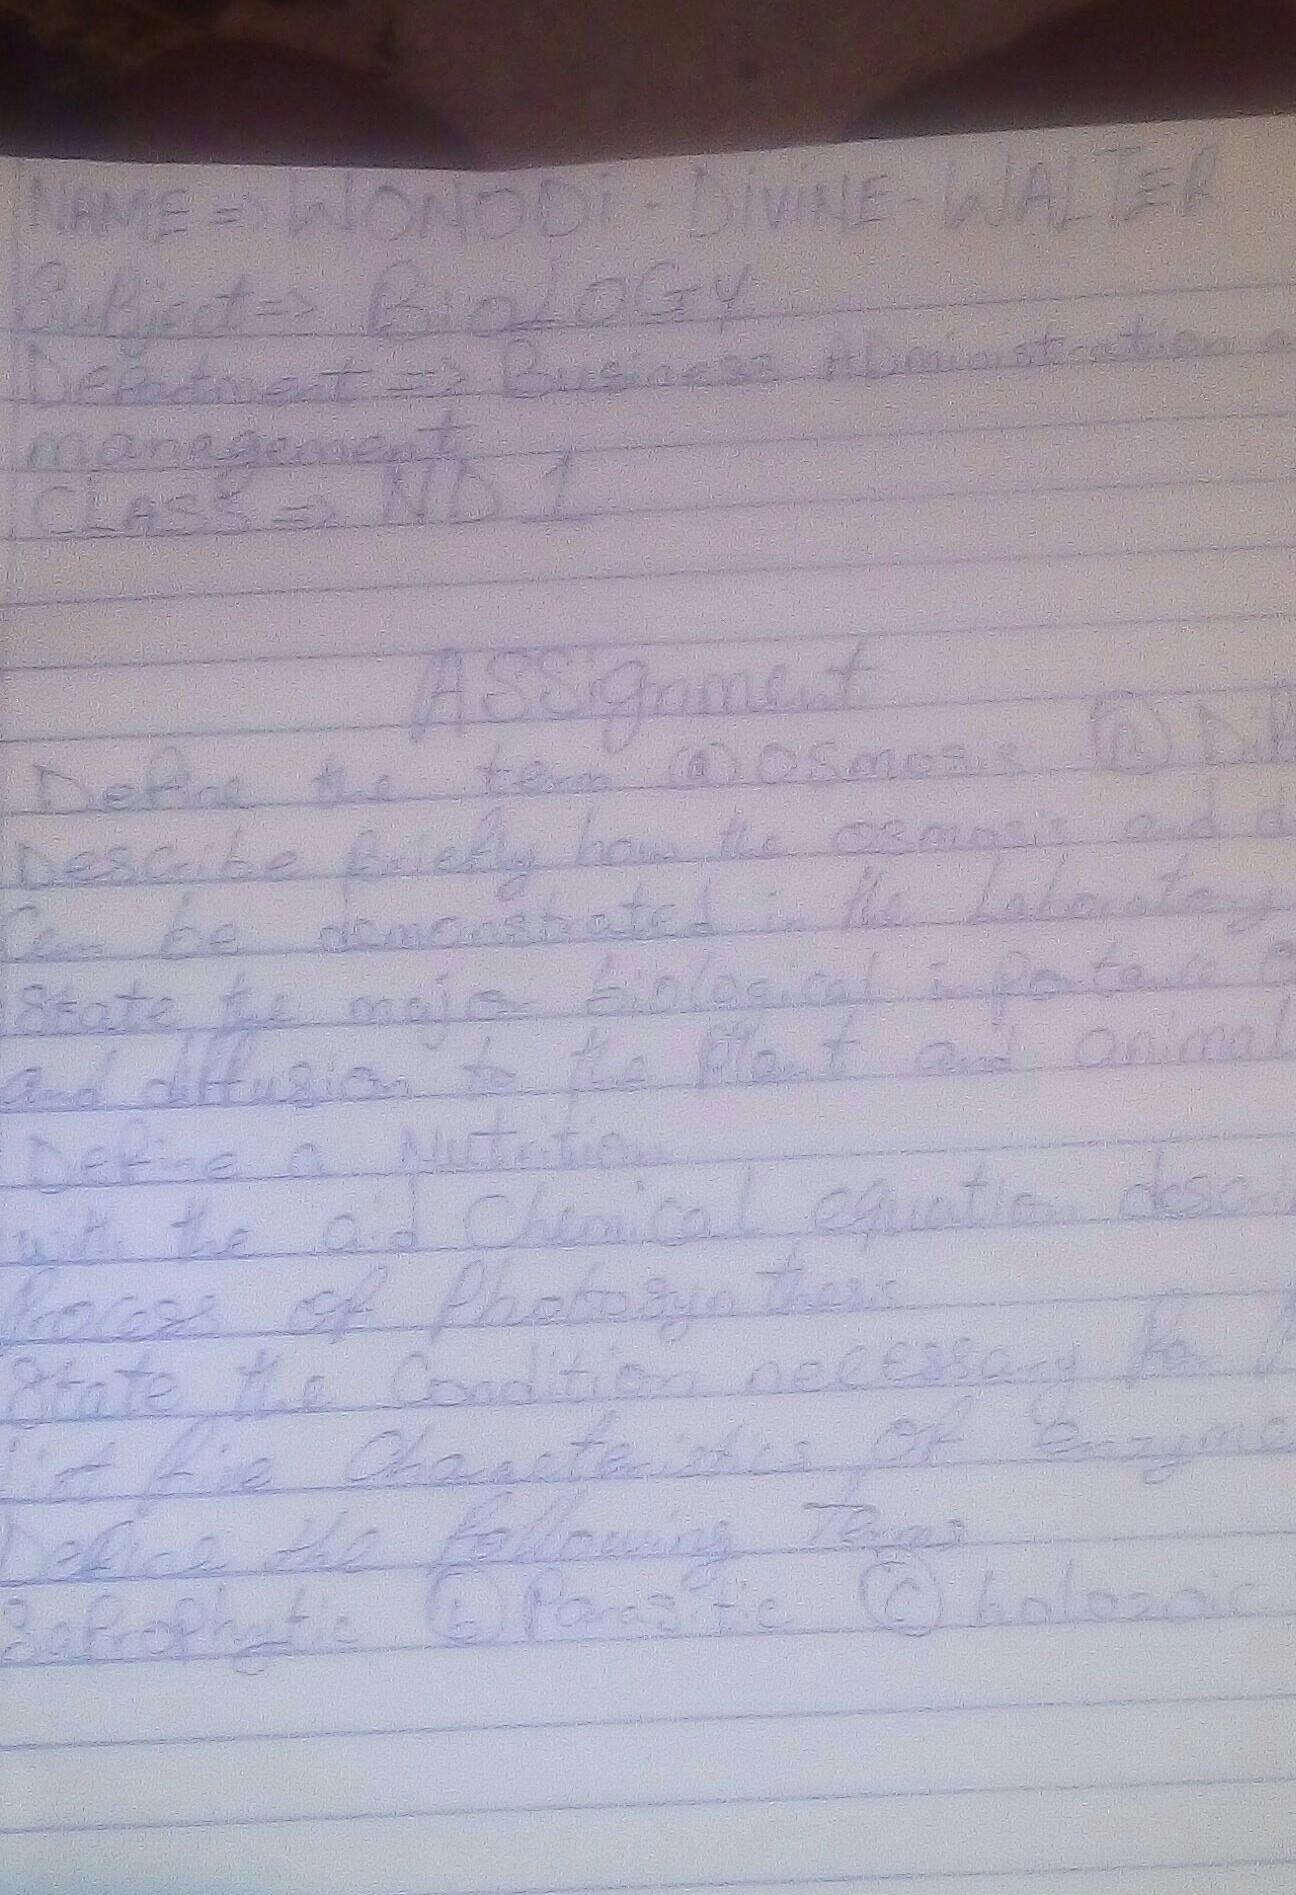 NAME => WONODi - DiViNE - WALTER
Subject => BioLOGY
Department => Business Administration
management
CLASS => ND 1
ASSignment
Define the term (a) OSmosis (b)
Describe briefly how the osmosis and
Can be demonstrated in the Laboratory
State the major biological importance
and diffusion to the Plant and animal
Define a Nutrition
with the aid Chemical equation
Process of Photosynthesis
State the Condition necessary for
five Characteristics of Enzyme
Define the following Terms
Saprophytic (b) Parasitic (c) holozoic